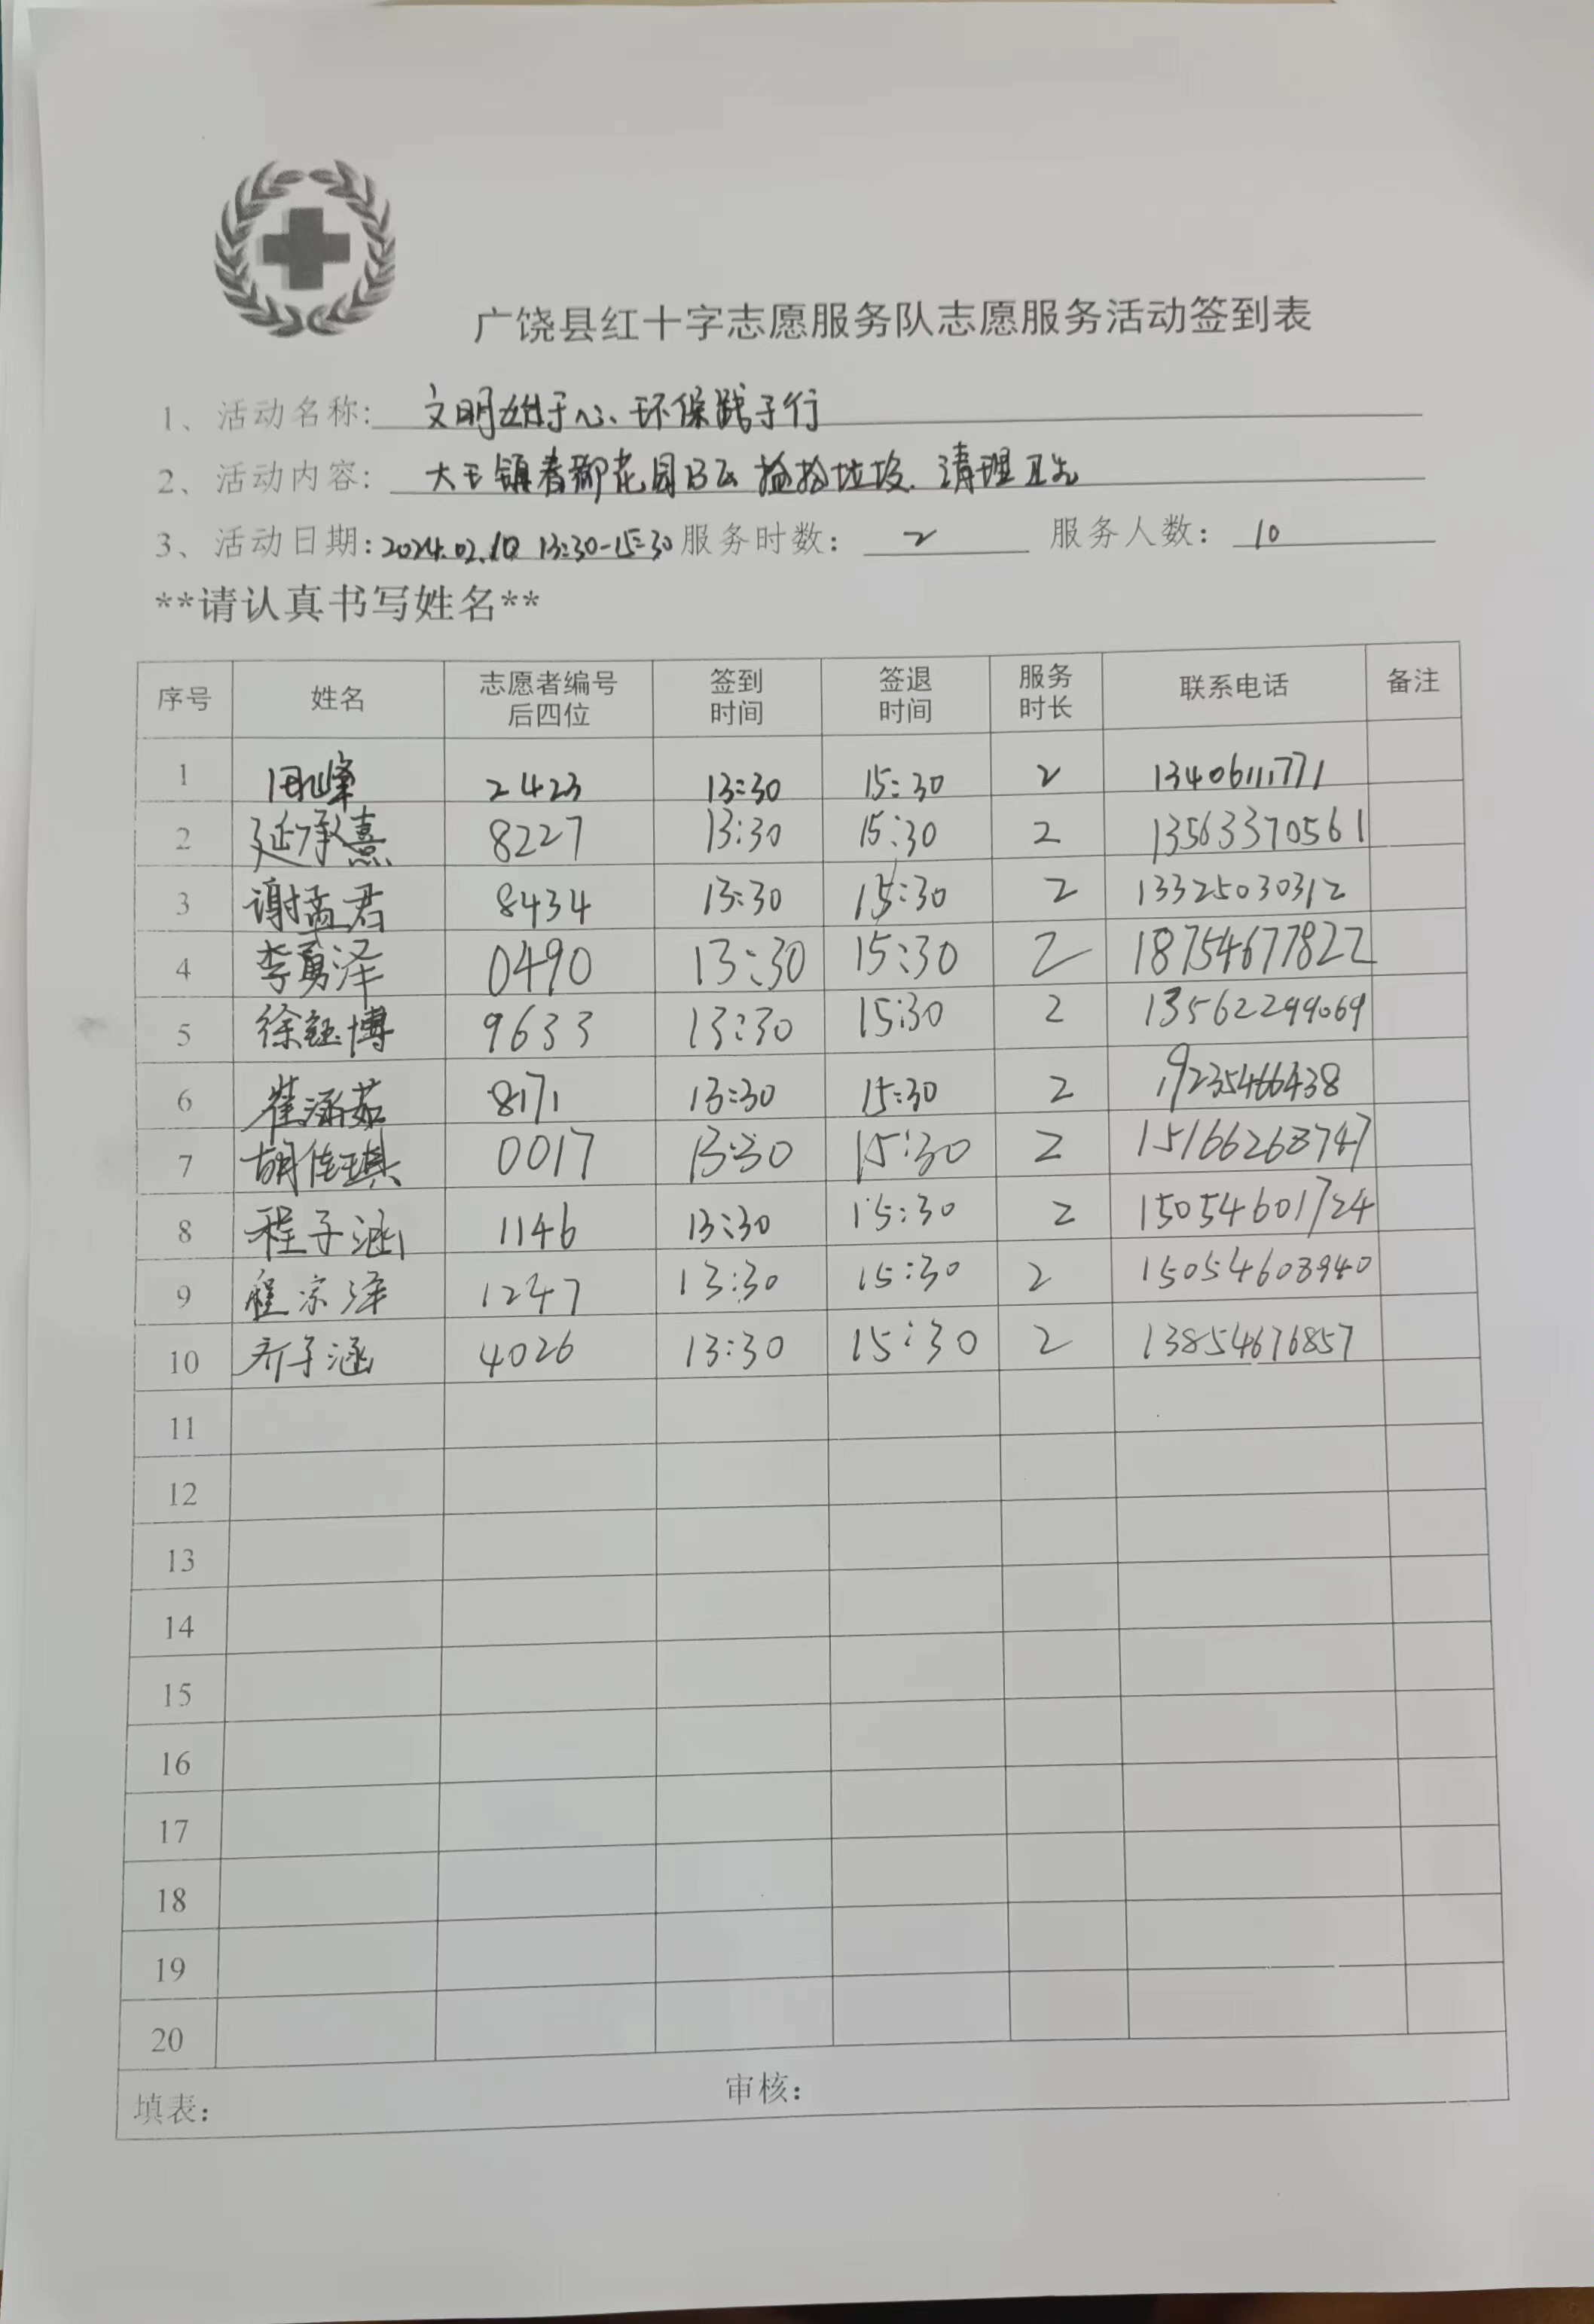 广饶县红十字志愿服务队志愿服务活动签到表
1、活动名称: 文明始于心、环保践于行
2、活动内容: 大王镇春都花园 捡拾垃圾. 清理卫生
3、活动日期: 2024.02. 13:30-15:30 服务时数: 2 服务人数: 10
**请认真书写姓名**
序号 姓名 志愿者编号后四位 签到时间 签退时间 服务时长 联系电话 备注
1 峰 2423 13:30 15:30 2 13406111771
2 延承熹 8227 13:30 15:30 2 13563370561
3 谢孟君 8434 13:30 15:30 2 13325030312
4 李勇泽 0490 13:30 15:30 2 18754677822
5 徐钰博 9633 13:30 15:30 2 13562299069
6 崔涵茹 8171 13:30 15:30 2 19235466438
7 胡佳琪 0017 13:30 15:30 2 15166268747
8 程子涵 1146 13:30 15:30 2 15054601724
9 程宗泽 1247 13:30 15:30 2 15054603940
10 乔子涵 4026 13:30 15:30 2 13854676857
11
12
13
14
15
16
17
18
19
20
填表: 审核: